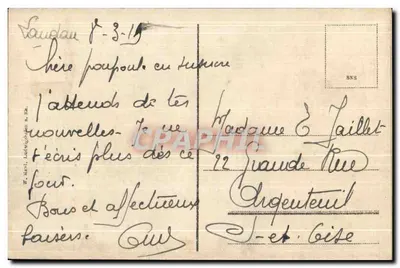 Landau 8-3-19
chère poupoule en sucre
j'attends de tes
nouvelles - Je ne
t'écris plus dès ce
jour.
Bons et affectueux
baisers.
Madame E Jaillet
22 Grande Rue
Argenteuil
S-et-Oise
CPARAMA